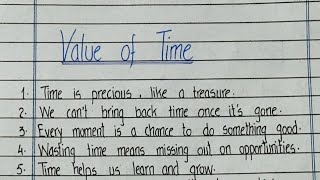 Value of Time
1. Time is precious, like a treasure.
2. We can't bring back time once it's gone.
3. Every moment is a chance to do something good.
4. Wasting time means missing out on opportunities.
5. Time helps us learn and grow.